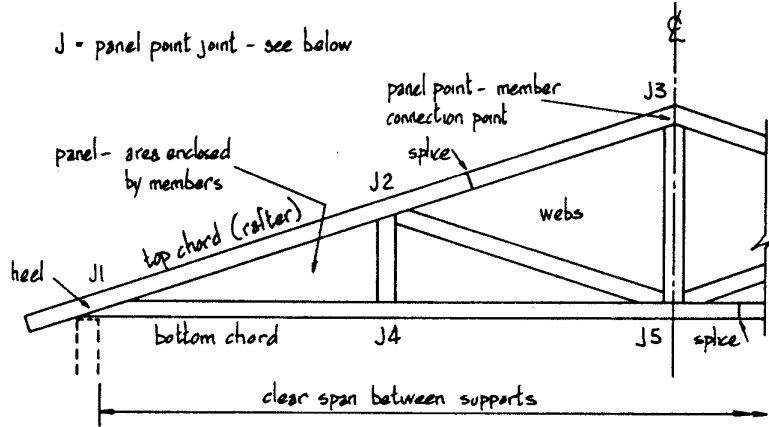 J = panel point joint - see below
℄
panel point - member
connection point
J3
panel - area enclosed
by members
splice
J2
top chord (rafter)
webs
heel
J1
bottom chord
J4
J5
splice
clear span between supports